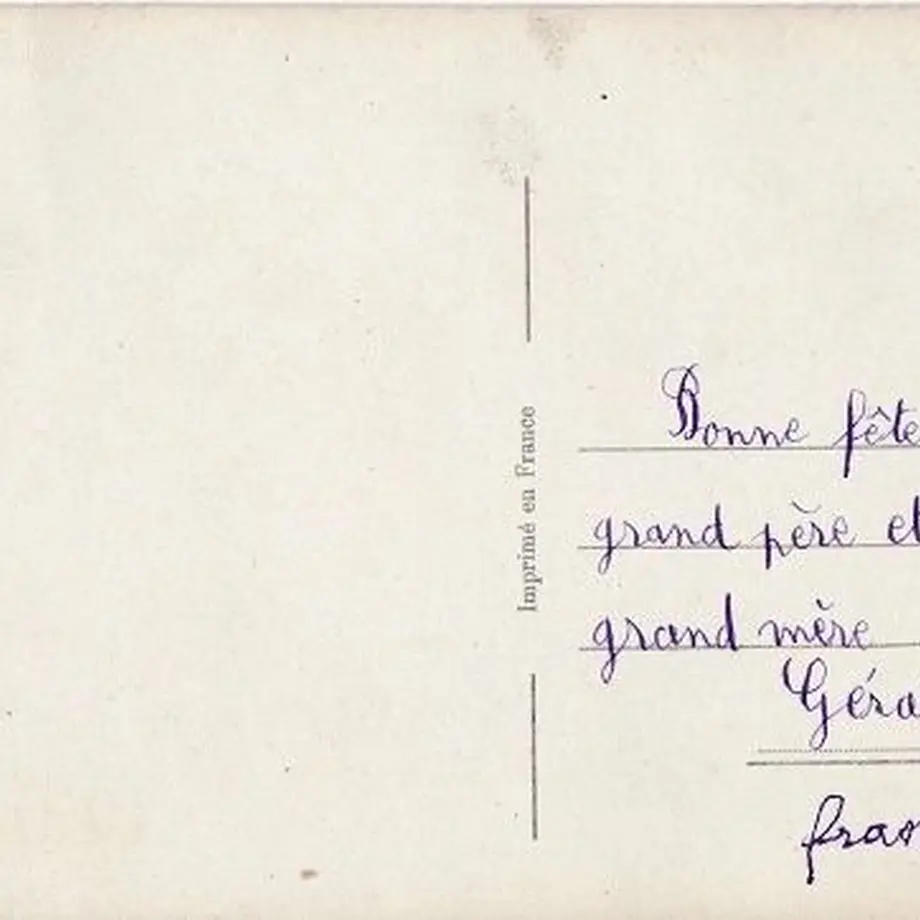 Imprimé en France
Bonne fête
grand père et
grand mère